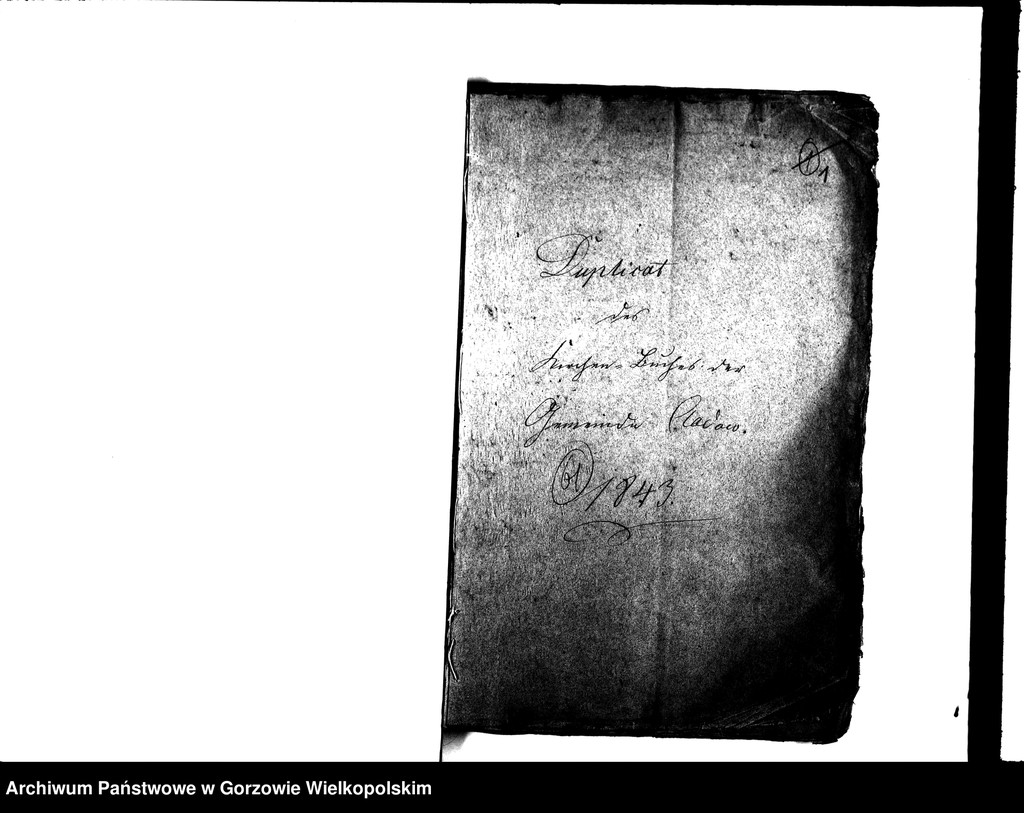 1
Duplicat
des
Kirchen-Buches der
Gemeinde Cladow.
1843.
Archiwum Państwowe w Gorzowie Wielkopolskim